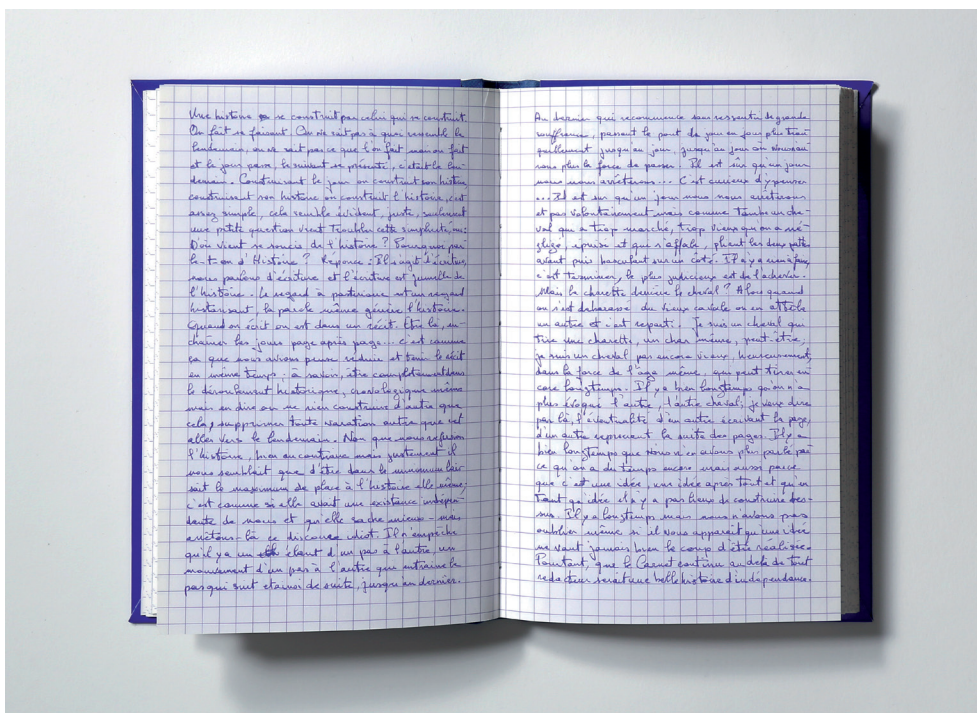 Une histoire se construit par celui qui se construit.
On fait se faisant. On ne sait pas à quoi ressemble le
lendemain, on ne sait pas ce que l'on fait mais on fait
et le jour passe, le suivant se présente, c'était le len-
demain. Construisant le jour on construit son histoire,
construisant son histoire on construit l'histoire, c'est
assez simple, cela semble évident, juste, seulement
une petite question vient troubler cette simplicité :
D'où vient le souci de l'histoire ? Pourquoi par-
le-t-on d'Histoire ? Réponse : Il s'agit d'écriture,
nous parlons d'écriture et l'écriture est jumelle de
l'histoire. Le regard à posteriori est un regard
historisant, la parole même génère l'histoire.
Quand on écrit on est dans un récit. Etre là, en-
chaîner les jours page après page... c'est comme
ça que nous avions pensé réduire et tenir le récit
en même temps : à savoir, être complètement dans
le déroulement historique, chronologique même
mais en dire ou ne rien construire d'autre que
cela, supprimer toute narration autre que cet
aller vers le lendemain. Non que nous refusions
l'histoire, bien au contraire mais justement il
nous semblait que d'être dans le minimum lais-
sait le maximum de place à l'histoire elle même,
c'est comme si elle avait une existence indépen-
dante de nous et qu'elle sache mieux - nous
arrêtons là ce discours idiot. Il n'empêche
qu'il y a un élant d'un pas à l'autre, un
mouvement d'un pas à l'autre que entraîne le
pas qui suit et ainsi de suite, jusqu'au dernier.
Au dernier qui recommence sans ressentir de grande
souffrance, passant le pont de jour en jour plus tran-
quillement jusqu'au jour, jusqu'au jour où nous n'au-
rons plus la force de passer. Il est sûr qu'un jour
nous nous arrêterons... C'est curieux d'y penser
... Il est sûr qu'un jour nous nous arrêterons
et pas volontairement mais comme tombe un che-
val qui a trop marché, trop vieux qu'on a né-
gligé, épuisé et qui s'affale, pliant les deux pattes
avant puis basculant sur un côté. Il n'y a rien à faire,
c'est terminé, le plus judicieux est de l'achever.
Mais la charette derrière le cheval ? Alors quand
on s'est débarassé du vieux cavale on en attèle
un autre et c'est reparti. Je suis un cheval qui
tire une charette, un char même, peut-être,
je suis un cheval pas encore vieux, heureusement,
dans la force de l'âge même, qui peut tirer en-
core longtemps. Il y a bien longtemps qu'on n'a
plus évoqué l'autre, l'autre cheval, je veux dire
par là, l'éventualité d'un autre écrivant la page,
d'un autre reprenant la suite des pages. Il y a
bien longtemps que nous n'en avons plus parlé parce
ce qu'on a du temps encore mais aussi parce
que c'est une idée, une idée après tout et qu'en
tant qu'idée il n'y a pas lieu de construire des-
sus. Il y a longtemps mais nous n'avons pas
oublié même si il nous apparait qu'une idée
ne vaut jamais bien le coup d'être réalisée.
Pourtant, que le Carnet continu au delà de tout
rédacteur serait une belle histoire d'indépendance.